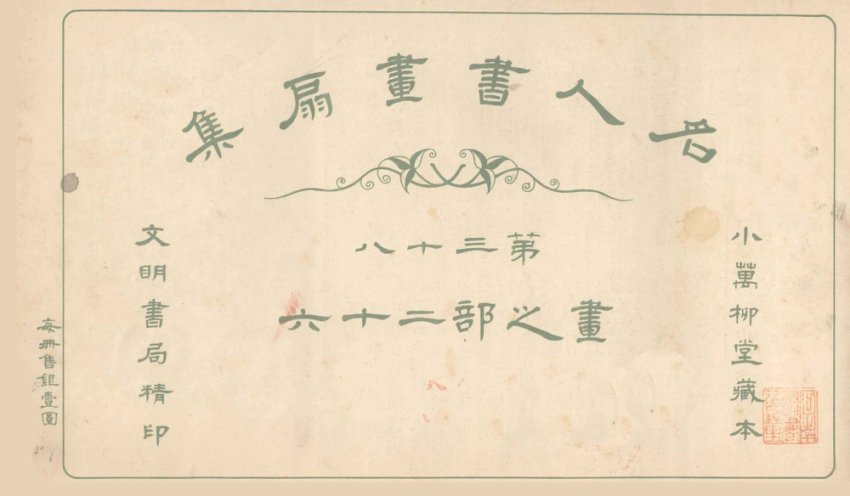 名人書畫扇集
第三十八
畫之部二十六
小萬柳堂藏本
文明書局精印
每冊售銀壹圓